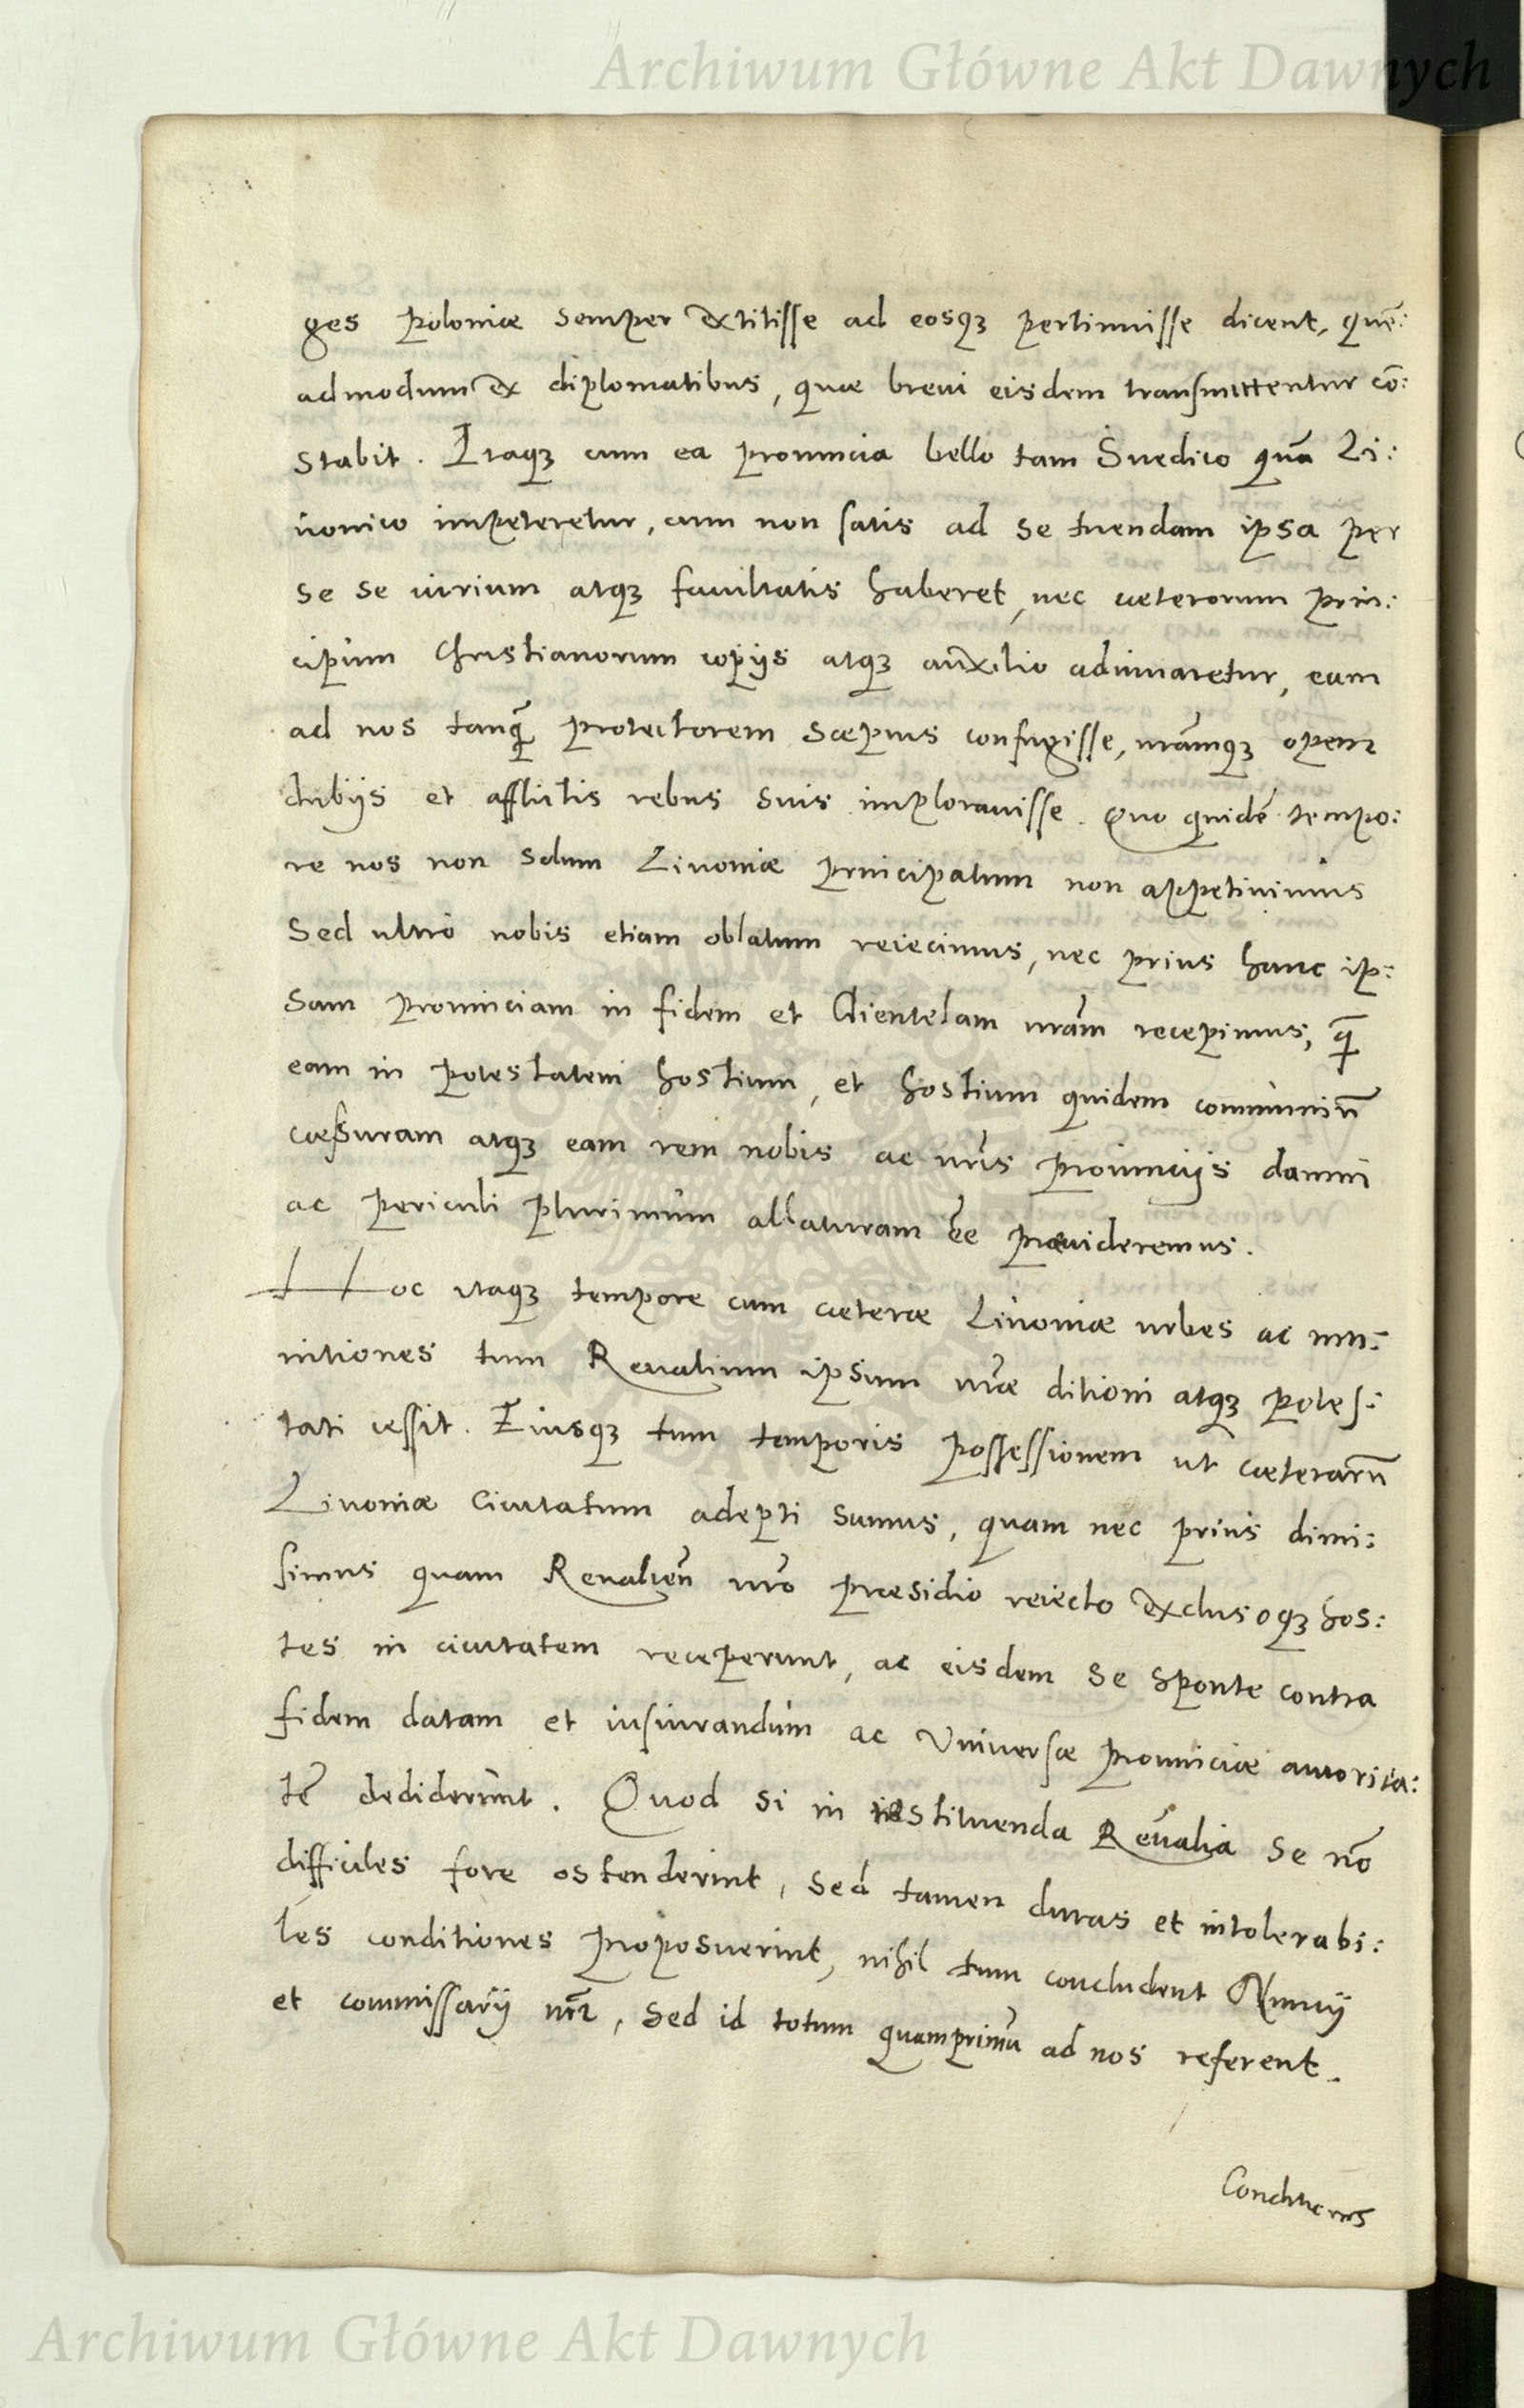 Archiwum Główne Akt Dawnych
ges Poloniæ semper extitisse ad eosqꝫ pertinuisse dicent, quē:
admodum ex diplomatibus, quæ breui eisdem transmittentur cō:
stabit. Itaqꝫ cum ea Prouincia bello tam Suedico quā Li:
uonico impeteretur, cum non satis ad se tuendam ipsa per
se se uirium atqꝫ facultatis haberet, nec cæterorum Prin:
cipum Christianorum copijs atqꝫ auxilio adiuuaretur, eam
ad nos tanq̄ Protectorem sæpius confugisse, nr̄amqꝫ opem
dubijs et afflictis rebus suis implorauisse. Quo quidē tempo:
re nos non solum Liuoniæ Principatum non appetiuimus
Sed ultro nobis etiam oblatum reiecimus, nec prius hanc ip:
sam prouinciam in fidem et Clientelam nr̄am recepimus, q̄
eam in potestatem hostium, et hostium quidem communiū
cæsuram atqꝫ eam rem nobis ac nr̄is Prouincijs damni
ac periculi plurimum allaturam ēē præuideremus.
Hoc itaqꝫ tempore cum cæteræ Liuoniæ urbes ac mu:
nitiones tum Reualium ipsum nr̄æ ditioni atqꝫ potes:
tati cessit. Eiusqꝫ tum temporis possessionem ut cæterarū
Liuoniæ Ciuitatum adepti sumus, quam nec prius dimi:
simus quam Revalieñ nr̄o præsidio reiecto exclusoqꝫ hos:
tes in ciuitatem receperunt, ac eisdem se sponte contra
fidem datam et iusiurandum ac Vniuersæ Prouinciæ autorita:
tē dediderunt. Quod si in restituenda Reualia se nō
difficiles fore ostenderint, sed tamen duras et intolerabi:
les conditiones proposuerint, nihil tum concludent Nuncij
et commissarij nr̄i, sed id totum quamprimū ad nos referent.
Conditiones
Archiwum Główne Akt Dawnych